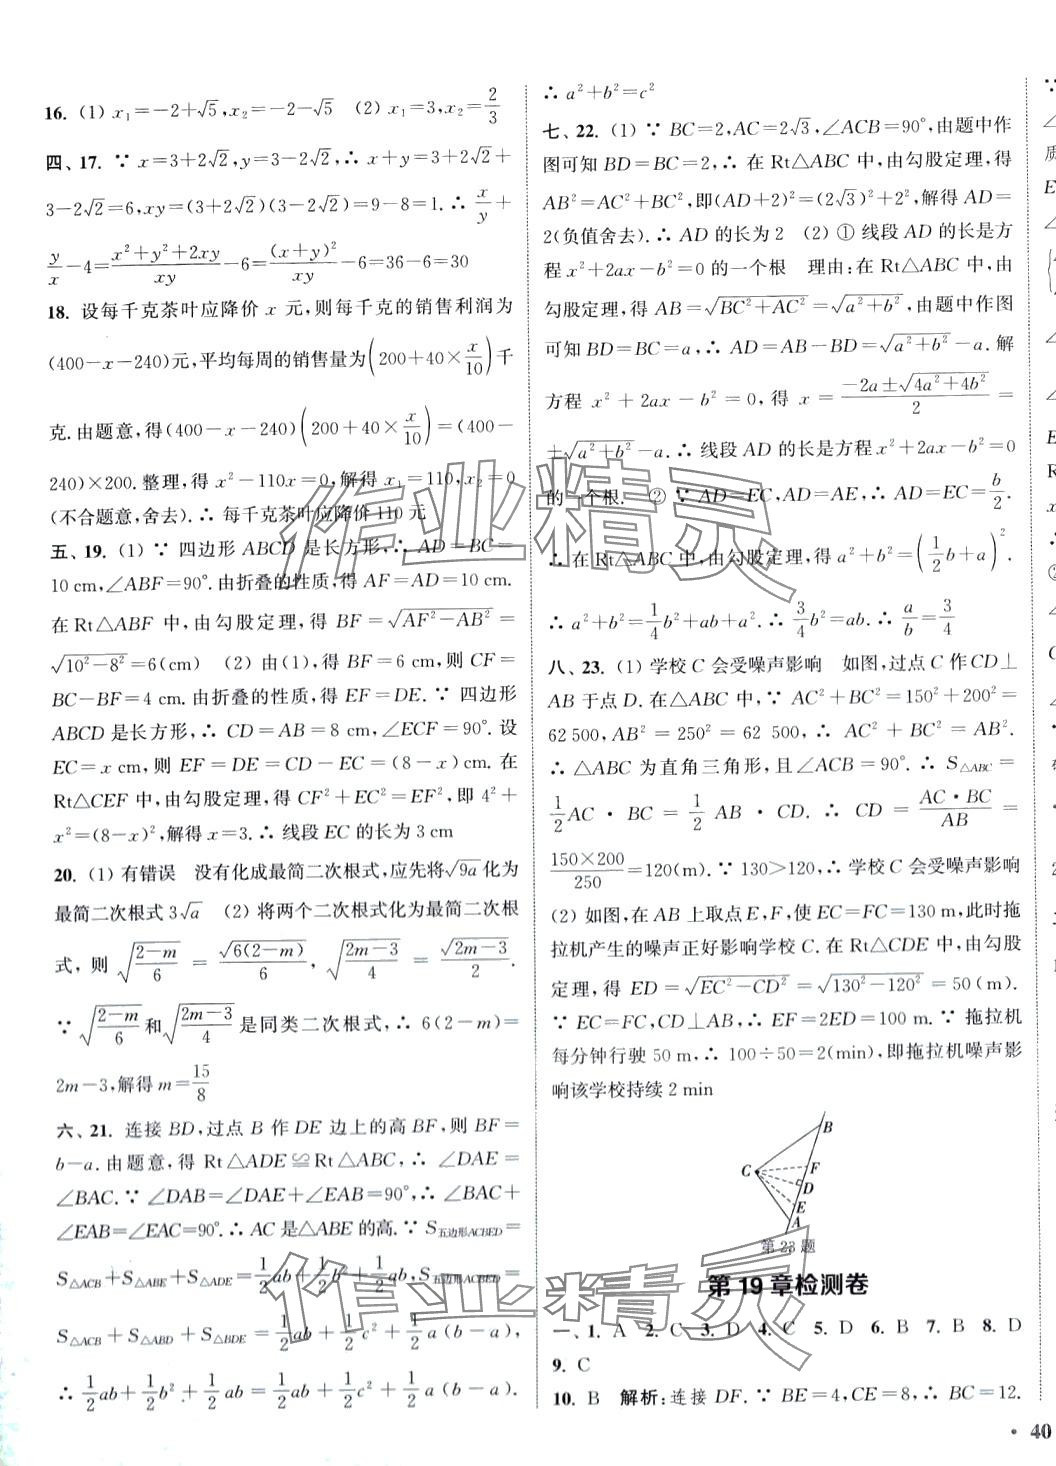 16. (1) x₁=−2+√5,x₂=−2−√5 (2) x₁=3,x₂=2/3
四、17. ∵ x=3+2√2,y=3−2√2,∴ x+y=3+2√2+
3−2√2=6,xy=(3+2√2)(3−2√2)=9−8=1.∴ x/y+
y/x−4=(x²+y²+2xy)/xy−6=(x+y)²/xy−6=36−6=30
18. 设每千克茶叶应降价 x 元,则每千克的销售利润为
(400−x−240)元,平均每周的销售量为(200+40×x/10)千
克.由题意,得(400−x−240)(200+40×x/10)=(400−
240)×200.整理,得 x²−110x=0,解得 x₁=110,x₂=0
(不合题意,舍去).∴ 每千克茶叶应降价 110 元
五、19. (1) ∵ 四边形 ABCD 是长方形,∴ AD=BC=
10 cm,∠ABF=90°.由折叠的性质,得 AF=AD=10 cm.
在 Rt△ABF 中,由勾股定理,得 BF=√(AF²−AB²)=
√(10²−8²)=6(cm) (2) 由(1),得 BF=6 cm,则 CF=
BC−BF=4 cm.由折叠的性质,得 EF=DE.∵ 四边形
ABCD 是长方形,∴ CD=AB=8 cm,∠ECF=90°.设
EC=x cm,则 EF=DE=CD−EC=(8−x)cm.在
Rt△CEF 中,由勾股定理,得 CF²+EC²=EF²,即 4²+
x²=(8−x)²,解得 x=3.∴ 线段 EC 的长为 3 cm
20. (1) 有错误 没有化成最简二次根式,应先将√(9a)化为
最简二次根式 3√a (2) 将两个二次根式化为最简二次根
式,则 √((2−m)/6) = √(6(2−m))/6, √((2m−3)/4) = √(2m−3)/2.
∵ √((2−m)/6)和√((2m−3)/4)是同类二次根式,∴ 6(2−m)=
2m−3,解得 m=15/8
六、21. 连接 BD,过点 B 作 DE 边上的高 BF,则 BF=
b−a.由题意,得 Rt△ADE≌Rt△ABC,∴ ∠DAE=
∠BAC.∵ ∠DAB=∠DAE+∠EAB=90°,∴ ∠BAC+
∠EAB=∠EAC=90°.∴ AC 是△ABE 的高.∵ S五边形ACBED=
S△ACB+S△ABE+S△ADE=1/2ab+1/2b²+1/2ab,S五边形ACBED=
S△ACB+S△ABD+S△BDE=1/2ab+1/2c²+1/2a(b−a),
∴ 1/2ab+1/2b²+1/2ab=1/2ab+1/2c²+1/2a(b−a).
∴ a²+b²=c²
七、22. (1) ∵ BC=2,AC=2√3,∠ACB=90°,由题中作
图可知 BD=BC=2,∴ 在 Rt△ABC 中,由勾股定理,得
AB²=AC²+BC²,即(AD+2)²=(2√3)²+2²,解得 AD=
2(负值舍去).∴ AD 的长为 2 (2) ① 线段 AD 的长是方
程 x²+2ax−b²=0 的一个根 理由:在 Rt△ABC 中,由
勾股定理,得 AB=√(BC²+AC²)=√(a²+b²).由题中作图
可知 BD=BC=a,∴ AD=AB−BD=√(a²+b²)−a.解
方程 x²+2ax−b²=0,得 x=(−2a±√(4a²+4b²))/2=
±√(a²+b²)−a.∴ 线段 AD 的长是方程 x²+2ax−b²=0
的一个根. ② ∵ AD=EC,AD=AE,∴ AD=EC=b/2.
∴ 在 Rt△ABC 中,由勾股定理,得 a²+b²=(1/2b+a)².
∴ a²+b²=1/4b²+ab+a².∴ 3/4b²=ab.∴ a/b=3/4
八、23. (1) 学校 C 会受噪声影响 如图,过点 C 作 CD⊥
AB 于点 D.在△ABC 中,∵ AC²+BC²=150²+200²=
62 500,AB²=250²=62 500,∴ AC²+BC²=AB².
∴ △ABC 为直角三角形,且∠ACB=90°.∴ S△ABC=
1/2AC·BC=1/2AB·CD.∴ CD=AC·BC/AB=
150×200/250=120(m).∵ 130>120,∴ 学校 C 会受噪声影响
(2) 如图,在 AB 上取点 E,F,使 EC=FC=130 m,此时拖
拉机产生的噪声正好影响学校 C.在 Rt△CDE 中,由勾股
定理,得 ED=√(EC²−CD²)=√(130²−120²)=50(m).
∵ EC=FC,CD⊥AB,∴ EF=2ED=100 m.∵ 拖拉机
每分钟行驶 50 m,∴ 100÷50=2(min),即拖拉机噪声影
响该学校持续 2 min
B
C
F
D
E
A
第 23 题
第 19 章检测卷
一、1. A 2. C 3. D 4. C 5. D 6. B 7. B 8. D
9. C
10. B 解析:连接 DF.∵ BE=4,CE=8,∴ BC=12.
· 40
作业精灵
作业精灵